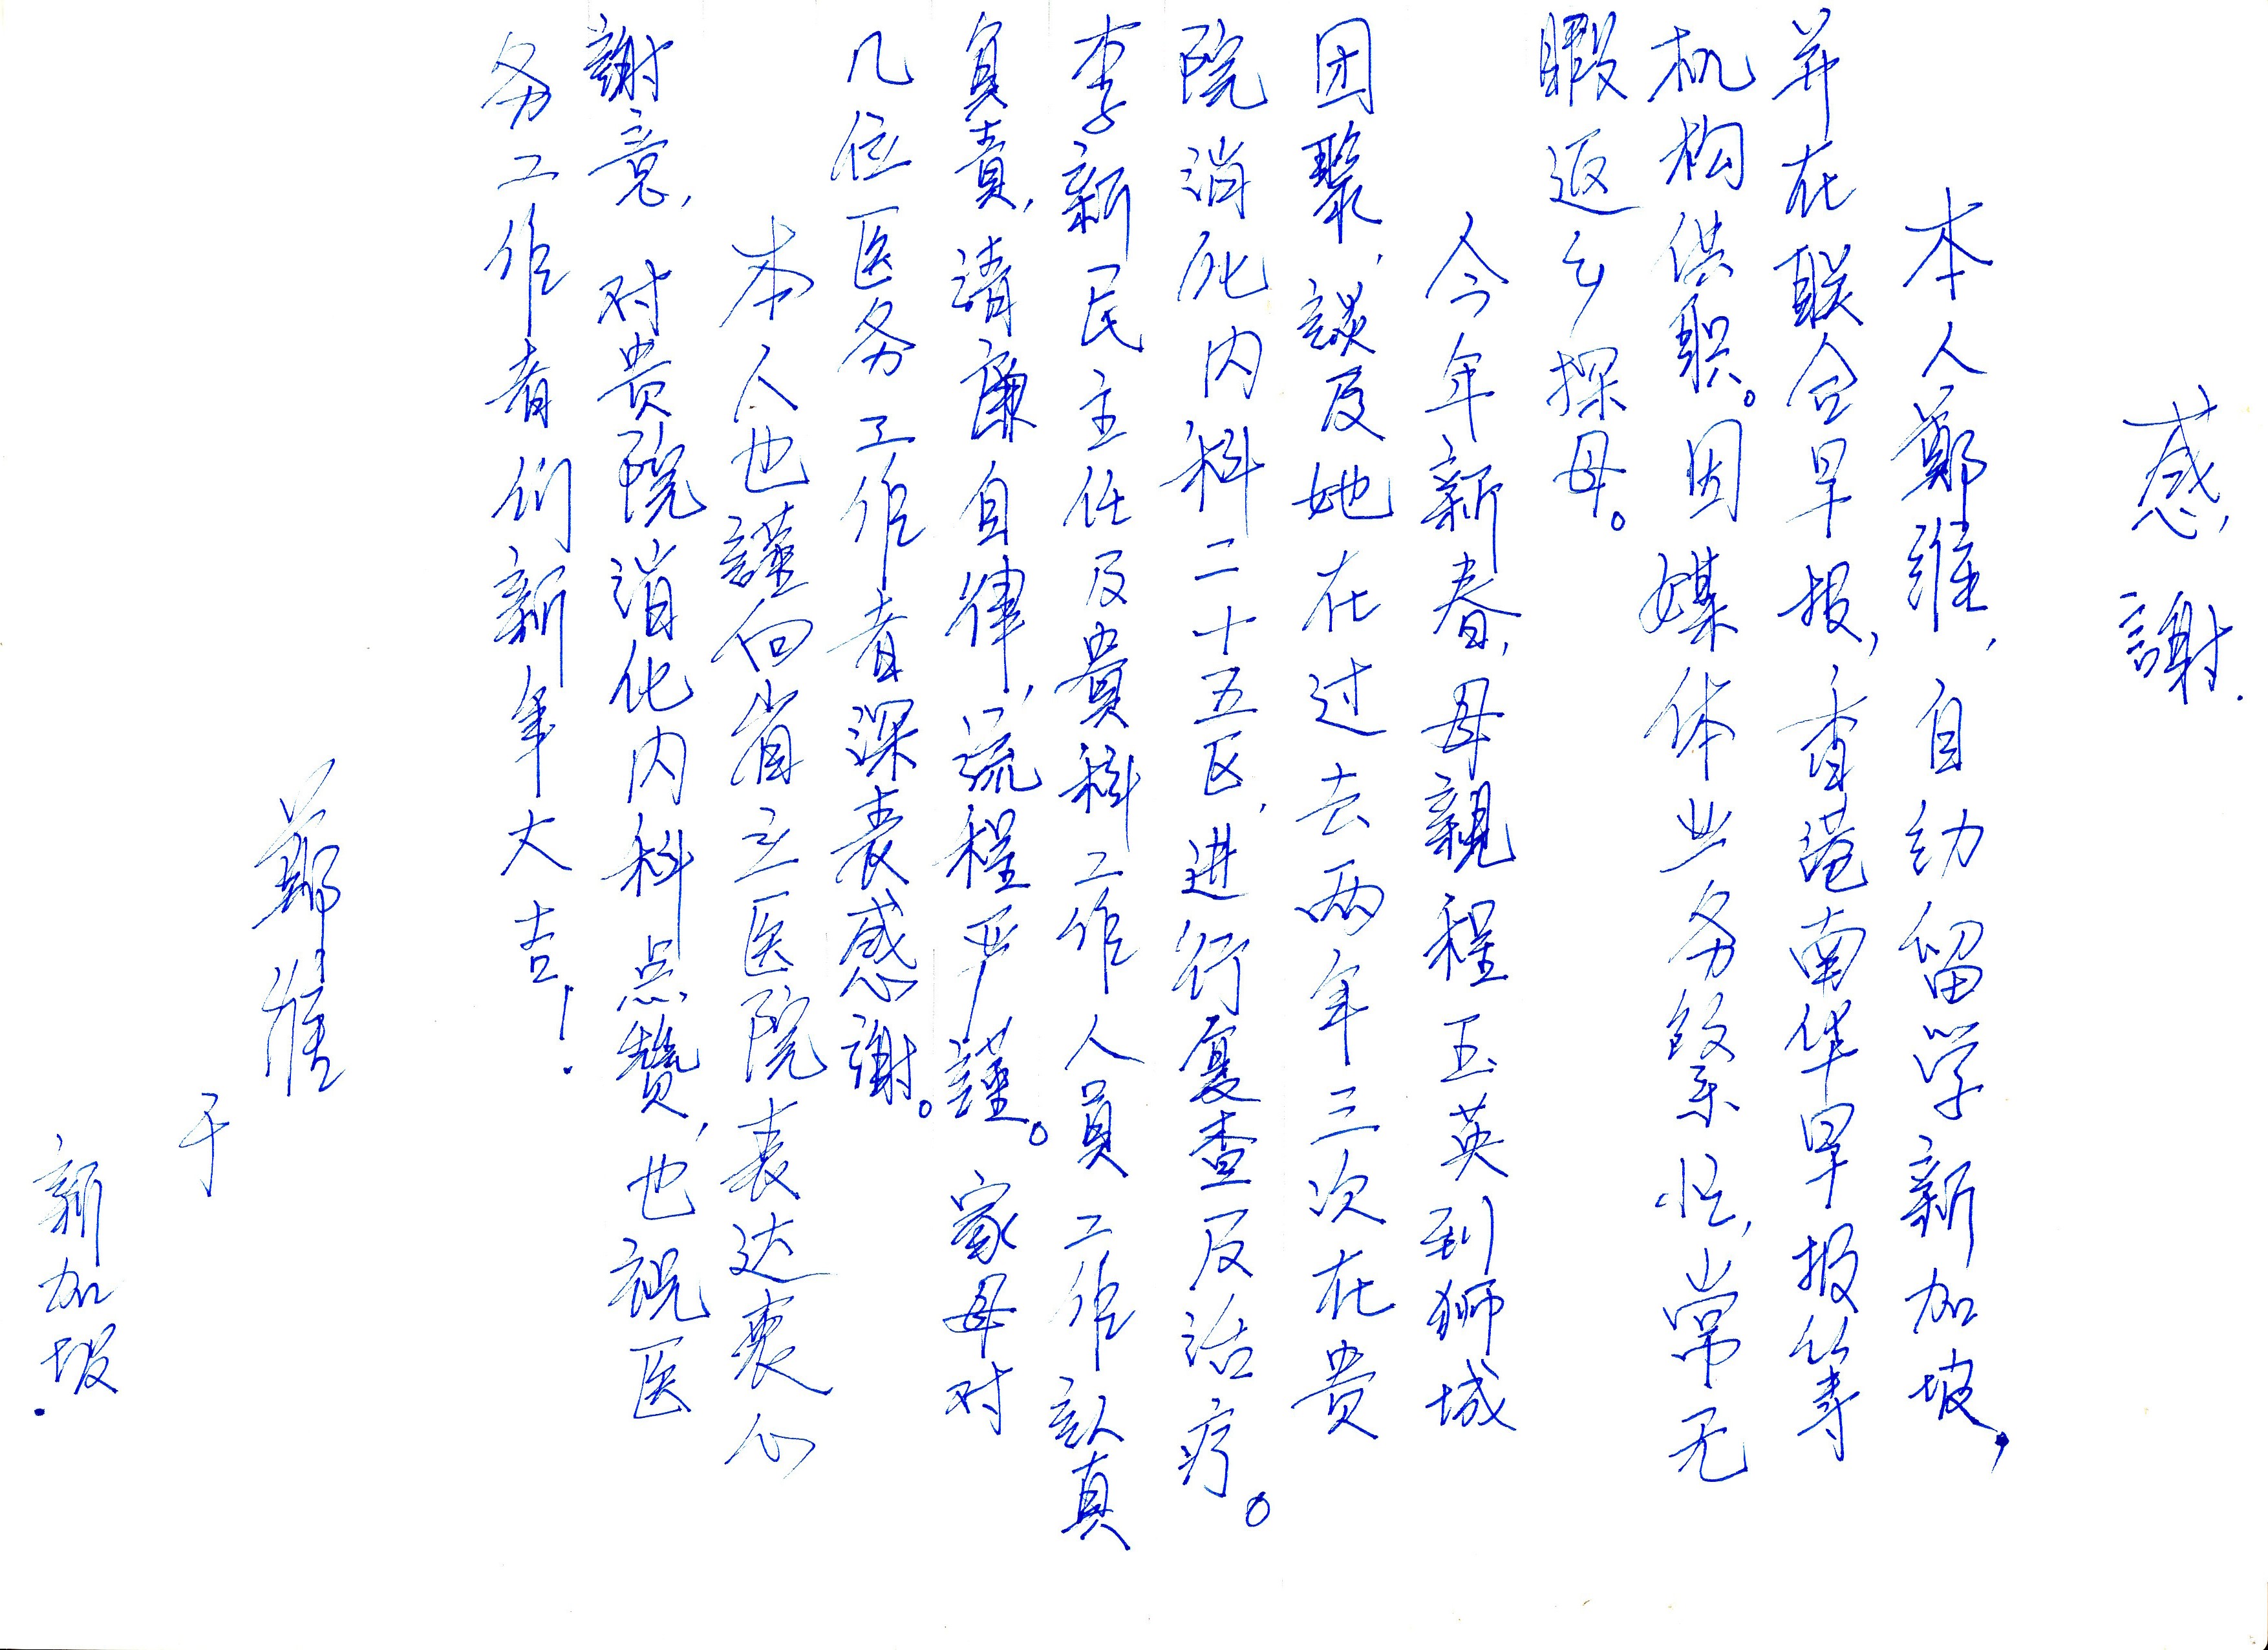 感謝.
本人鄭維，自幼留学新加坡，
并在联合早报，香港南华早报等
机构供职。因媒体业务繁忙，常无
暇返乡探母。
今年新春，母親程玉英到狮城
团聚，談及她在过去两年三次在贵
院消化内科二十五区，进行复查及治疗。
李新民主任及貴科工作人員工作認真
負責，清廉自律，流程严謹。家母对
几位医务工作者深表感謝。
本人也謹向省立医院表达衷心
謝意，对贵院消化内科点赞，也祝医
务工作者们新年大吉！
鄭維
于
新加坡.